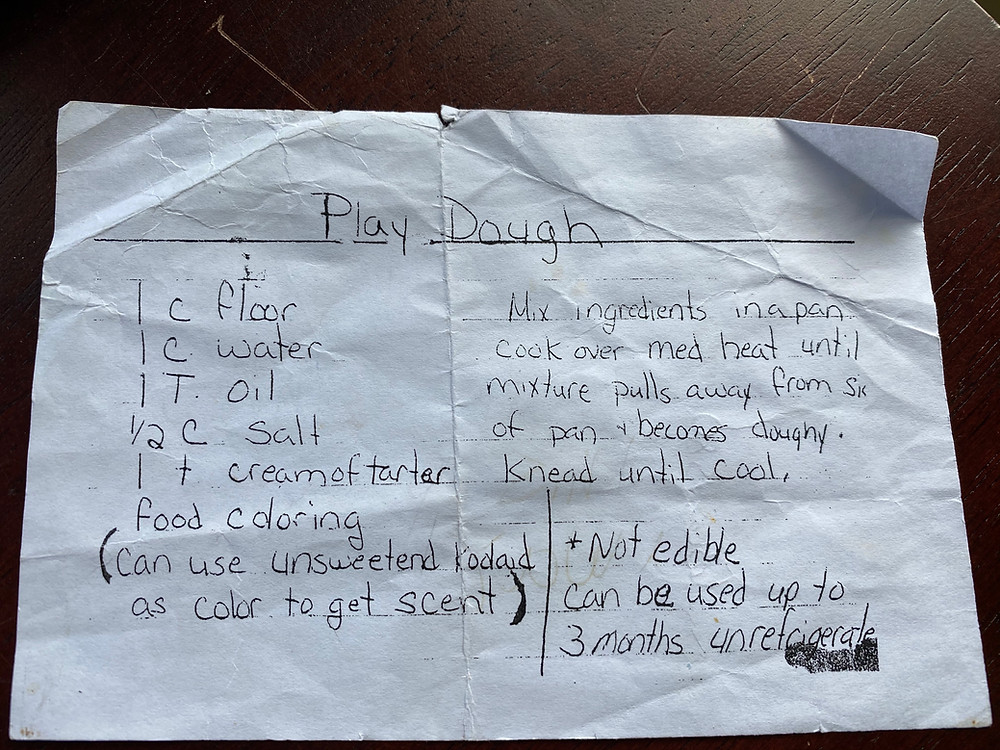 Play Dough
1 c floor
1 c. water
1 T. oil
1/2 c salt
1 t creamoftarter
food coloring
(can use unsweetend Kodaid
as color to get scent)
Mix ingredients in a pan
cook over med heat until
mixture pulls away from si
of pan + becomes doughy.
Knead until cool.
*Not edible
can be used up to
3 months unrefrigerate